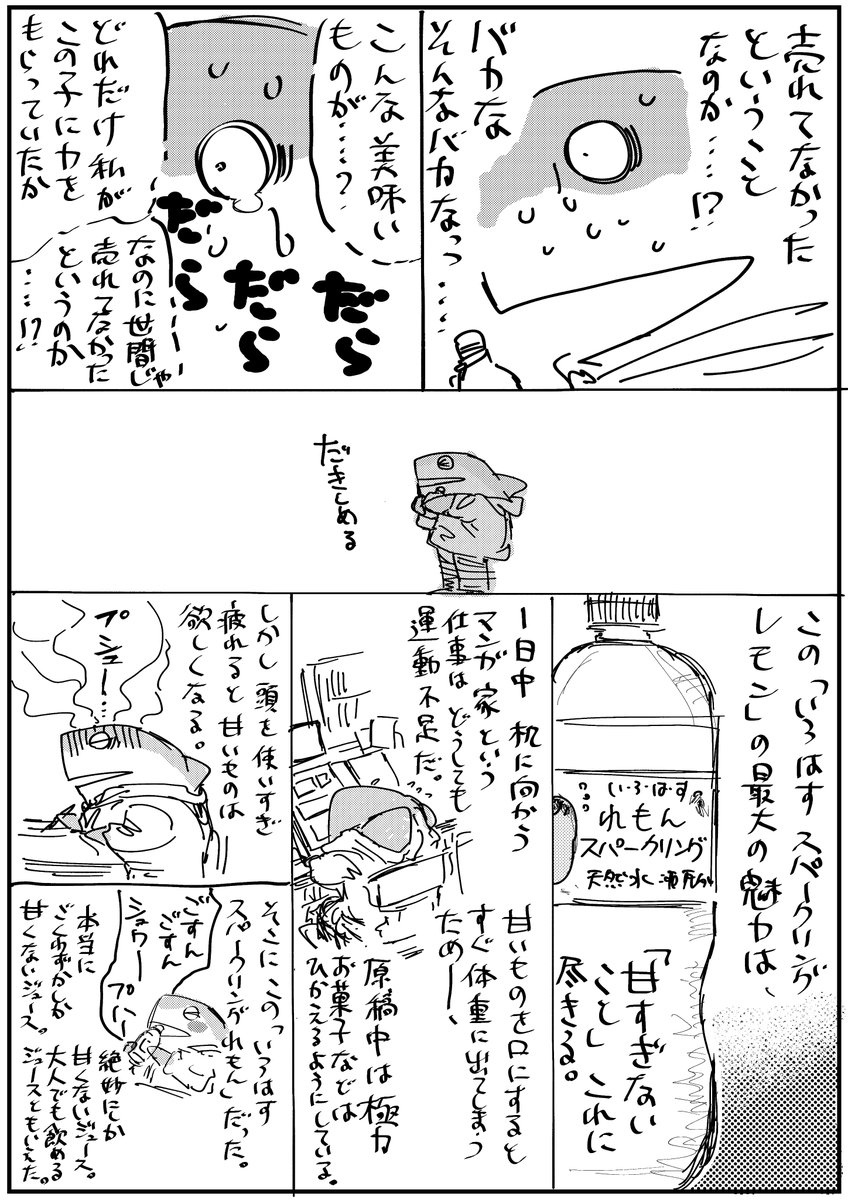 売れてなかった
ということ
なのか……!?
バカな
そんなバカなっ……
こんな美味い
ものが……?
どれだけ私が
この子に力を
もらっていたか
なのに世間じゃ
売れてなかった
というのか
……!?
だら
だら
だら
だきしめる
この「いろはすスパークリング
レモン」の最大の魅力は、
い・ろ・は・す
れもん
スパークリング
天然水
「甘すぎない
こと」これに
尽きる。
一日中 机に向かう
マンガ家という
仕事はどうしても
運動不足だ。
甘いものを口にすると
すぐ体重に出てしまう
ためー、
原稿中は極力
お菓子などは
ひかえるようにしている。
しかし頭を使いすぎ
疲れると甘いものは
欲しくなる。
プシュー…
そこにこの「いろはす
スパークリングれもん」だった。
ごすん
ごすん
シュワー
プハー
本当に
ごくわずかしか
甘くないジュース。
絶妙にしか
甘くないジュース。
大人でも飲める
ジュースともいえた。